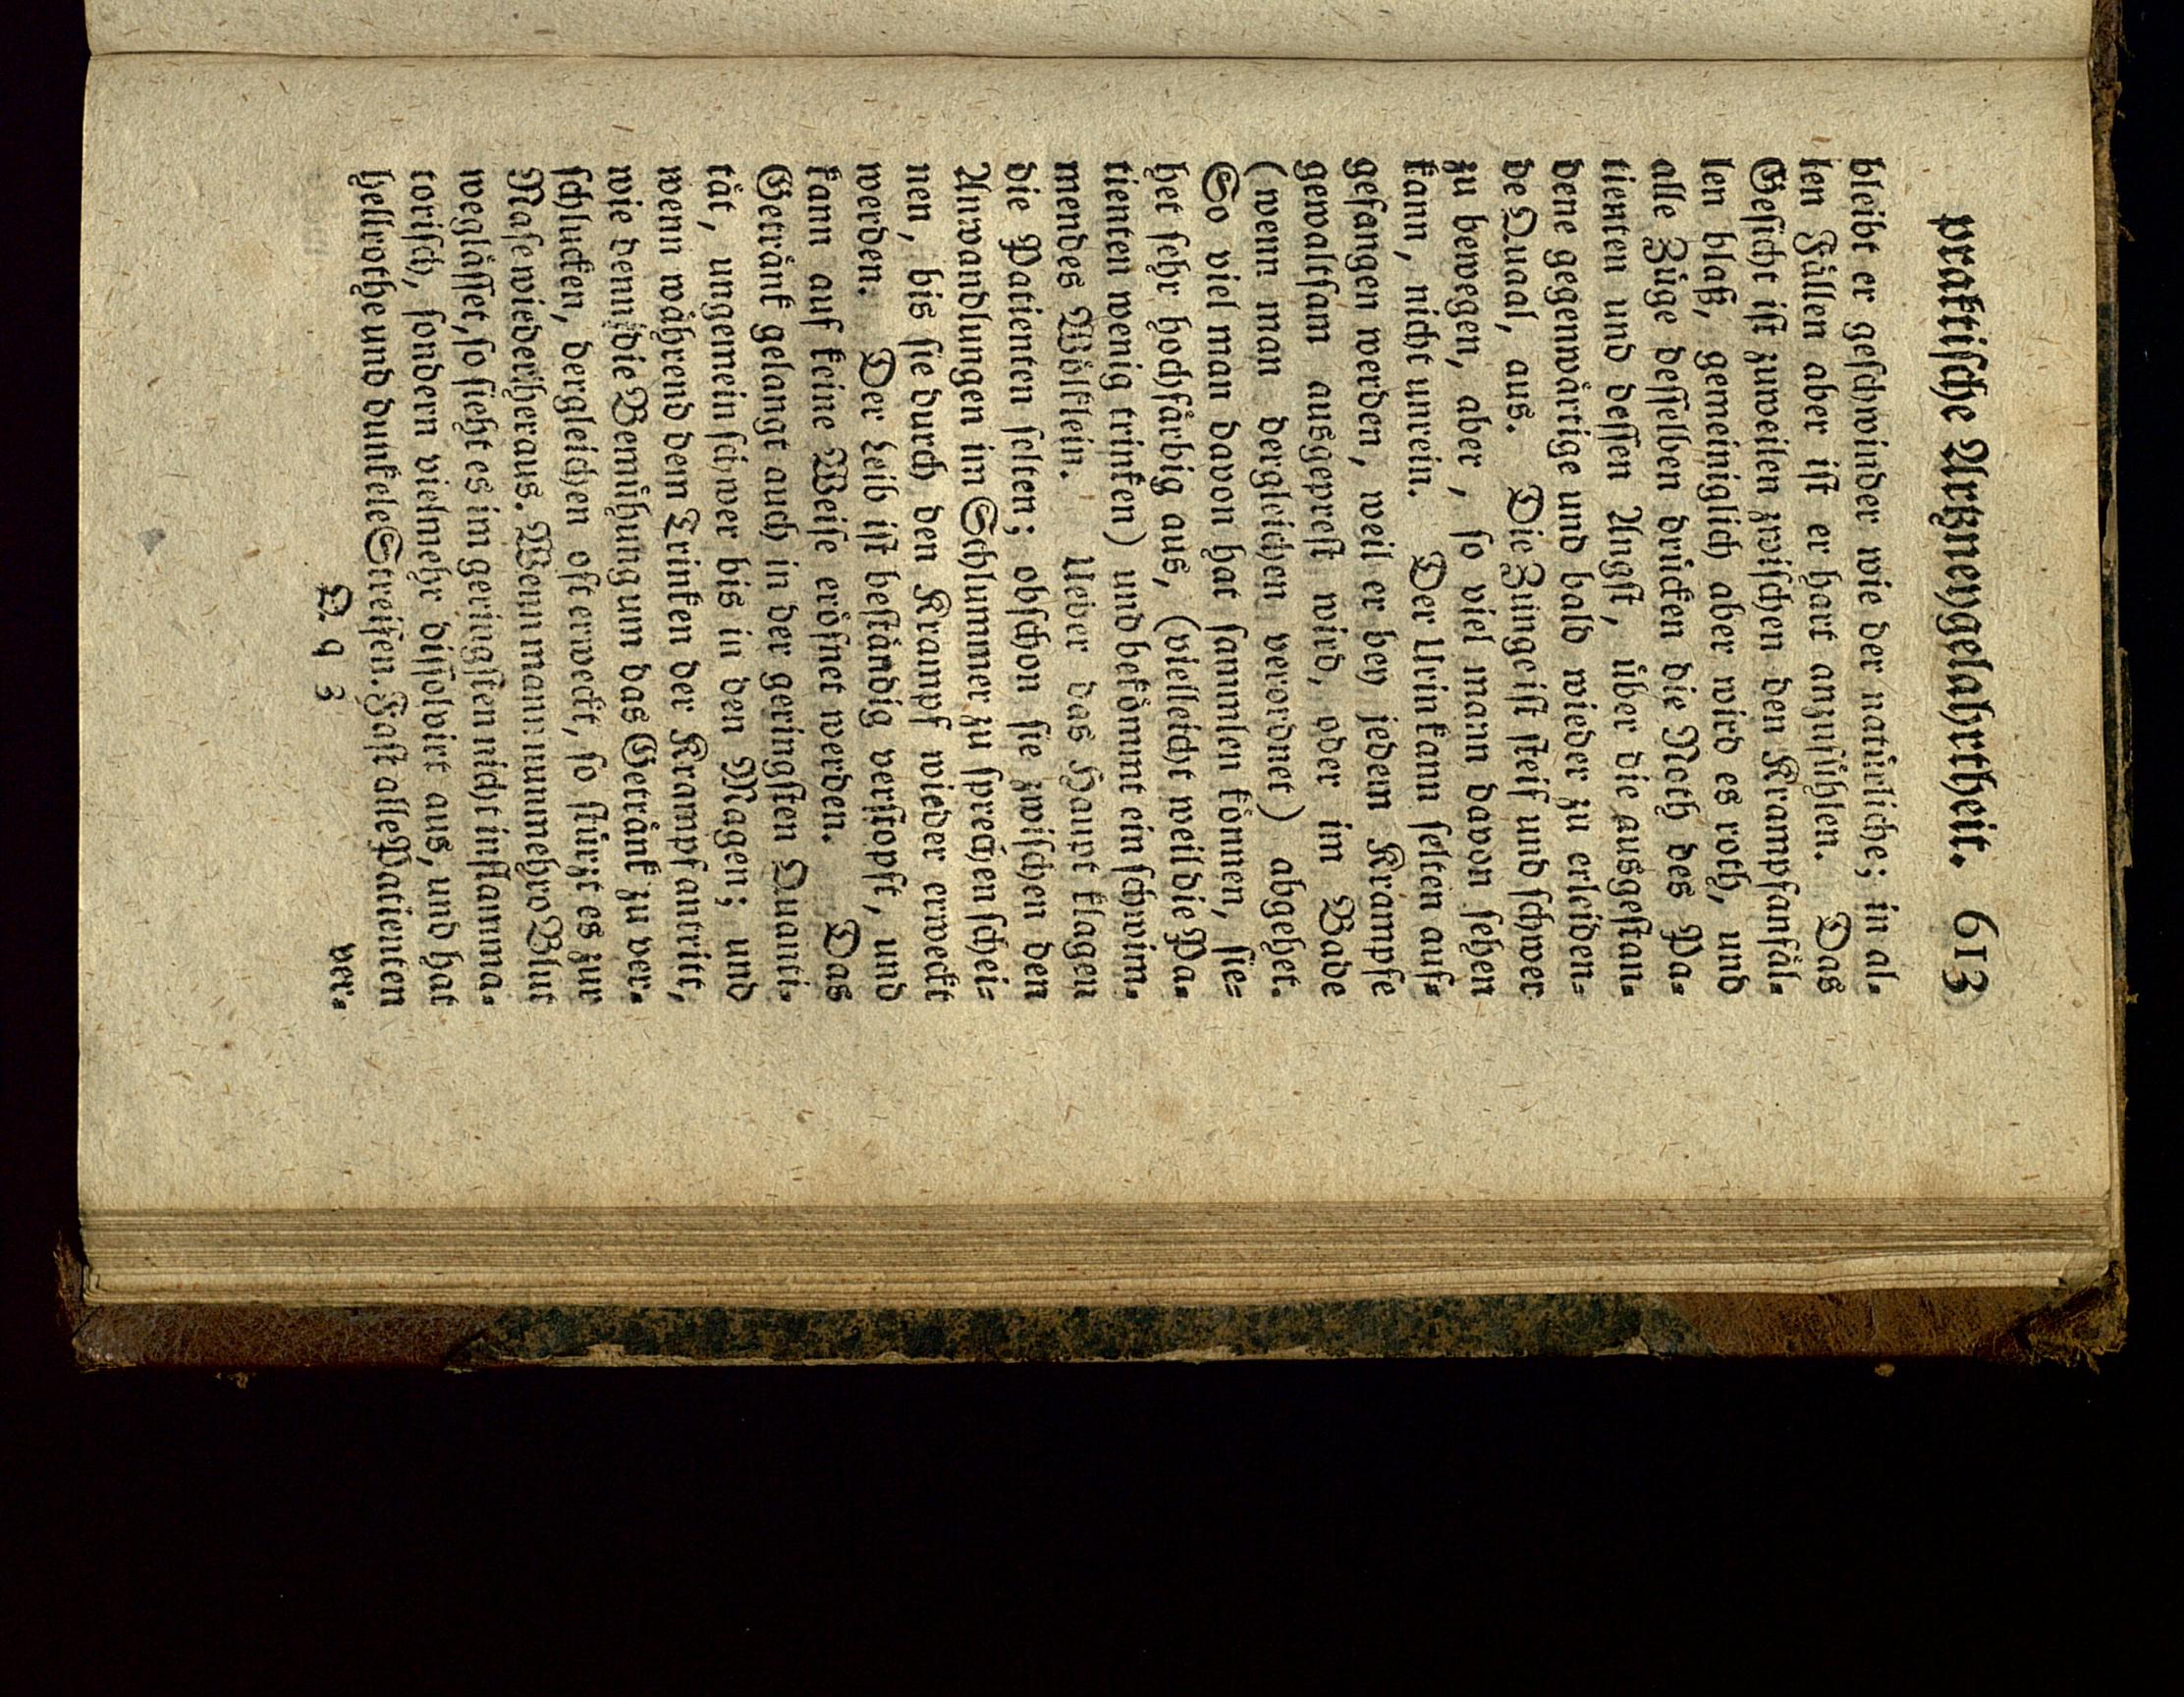 praktische Arzneygelahrtheit. 613
bleibt er geschwinder wie der natürliche; in al-
len Fällen aber ist er hart anzufühlen. Das
Gesicht ist zuweilen zwischen den Krampfanfäl-
len blaß, gemeiniglich aber wird es roth, und
alle Züge desselben drücken die Noth des Pa-
tienten und dessen Angst, über die ausgestan-
dene gegenwärtige und bald wieder zu erleiden-
de Quaal, aus. Die Zunge ist steif und schwer
zu bewegen, aber, so viel mann davon sehen
kann, nicht unrein. Der Urin kann selten auf-
gefangen werden, weil er bey jedem Krampfe
gewaltsam ausgepreßt wird, oder im Bade
(wenn man dergleichen verordnet) abgehet.
So viel man davon hat sammlen können, sie-
het sehr hochfärbig aus, (vielleicht weil die Pa-
tienten wenig trinken) und bekömmt ein schwim-
mendes Wölklein. Ueber das Haupt klagen
die Patienten selten; obschon sie zwischen den
Anwandlungen im Schlummer zu sprechen schei-
nen, bis sie durch den Krampf wieder erweckt
werden. Der Leib ist beständig verstopft, und
kann auf keine Weise eröfnet werden. Das
Getränk gelangt auch in der geringsten Quanti-
tät, ungemein schwer bis in den Magen; und
wenn während dem Trinken der Krampf antritt,
wie denn die Bemühung um das Getränk zu ver-
schlucken, dergleichen oft erweckt, so stürzt es zur
Nase wieder heraus. Wenn mann nunmehro Blut
wegläßet, so sieht es im geringsten nicht inflamma-
torisch, sondern vielmehr dissolvirt aus, und hat
hellrothe und dunkele Streifen. Fast alle Patienten
Q q 3 ver-